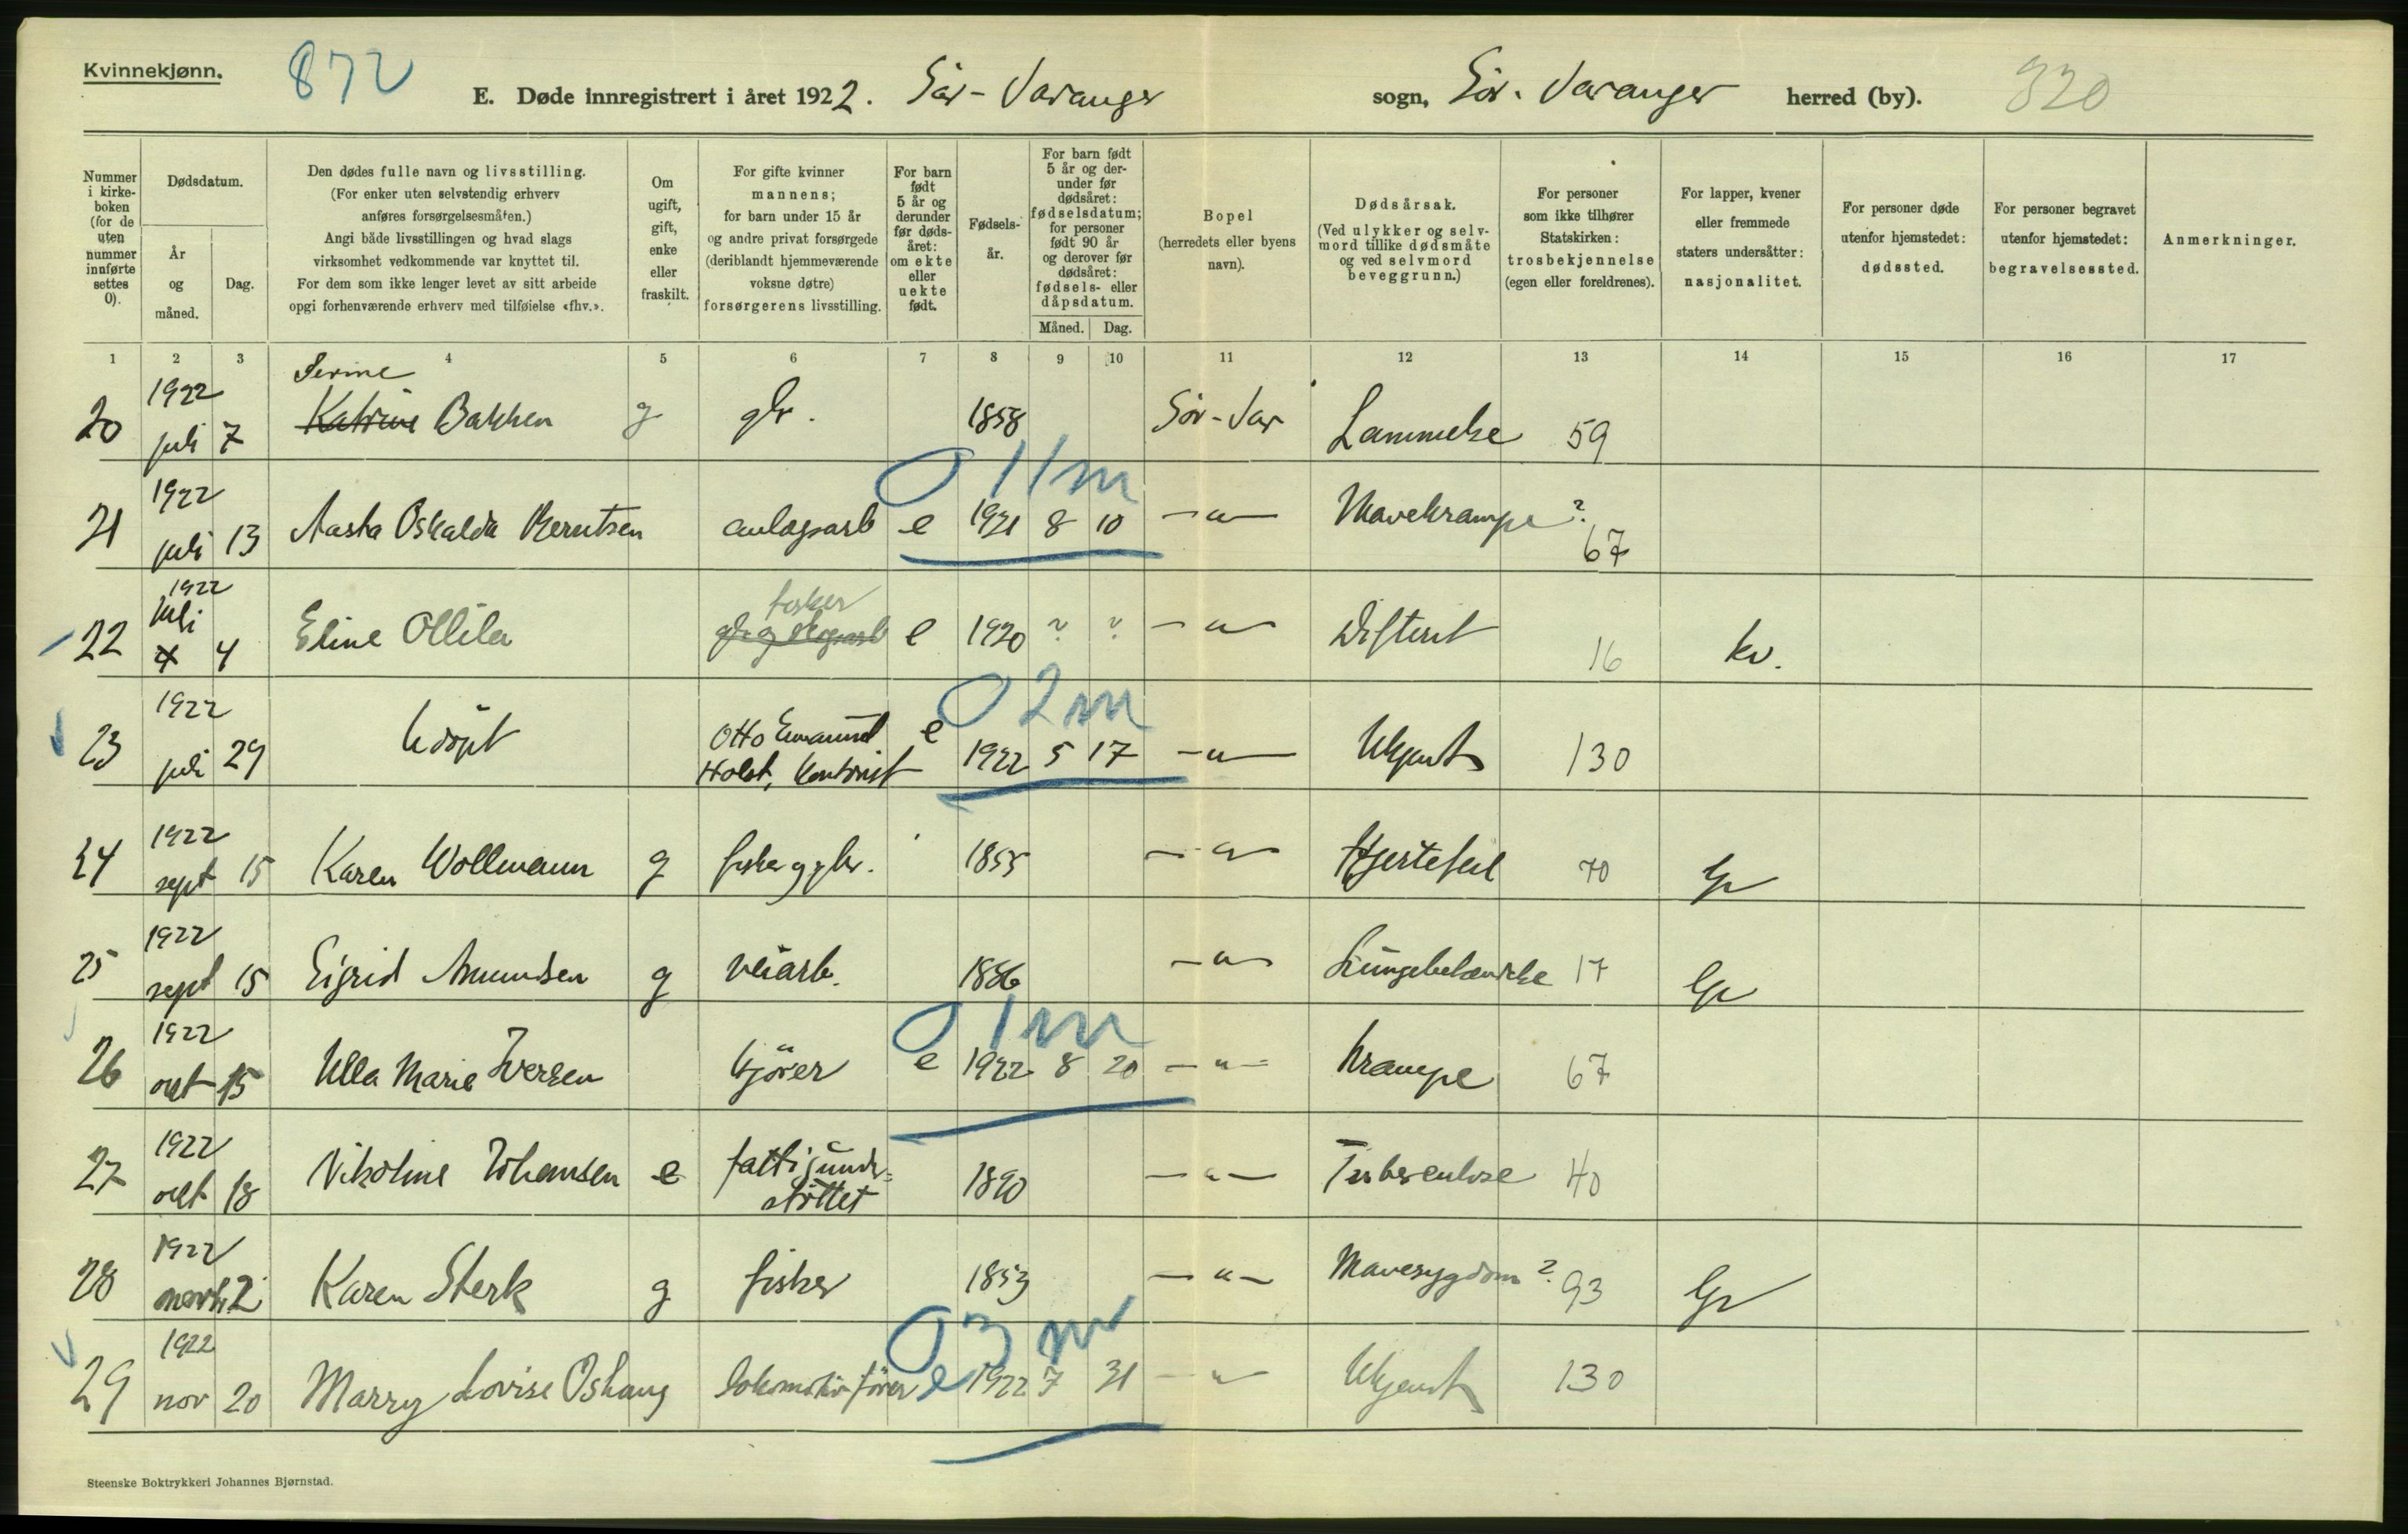 Kvinnekjønn.
872
E. Døde innregistrert i året 1922. Sør-Varanger sogn, Sør-Varanger herred (by).
320
Nummer i kirkeboken (for de uten nummer innførte settes 0).
Dødsdatum.
År og måned.
Dag.
Den dødes fulle navn og livsstilling.
(For enker uten selvstendig erhverv anføres forsørgelsesmåten.)
Angi både livsstillingen og hvad slags virksomhet vedkommende var knyttet til.
For dem som ikke lenger levet av sitt arbeide opgi forhenværende erhverv med tilføielse «fhv.».
Om ugift, gift, enke eller fraskilt.
For gifte kvinner mannens; for barn under 15 år og andre privat forsørgede (deriblandt hjemmeværende voksne døtre) forsørgerens livsstilling.
For barn født 5 år og derunder før dødsåret: om ekte eller uekte født.
Fødselsår.
For barn født 5 år og derunder før dødsåret: fødselsdatum; for personer født 90 år og derover før dødsåret: fødsels- eller dåpsdatum.
Måned. Dag.
Bopel (herredets eller byens navn).
Dødsårsak.
(Ved ulykker og selvmord tillike dødsmåte og ved selvmord beveggrunn.)
For personer som ikke tilhører Statskirken: trosbekjennelse (egen eller foreldrenes).
For lapper, kvener eller fremmede staters undersåtter: nasjonalitet.
For personer døde utenfor hjemstedet: dødssted.
For personer begravet utenfor hjemstedet: begravelsessted.
Anmerkninger.
1 2 3 4 5 6 7 8 9 10 11 12 13 14 15 16 17
20 1922 juli 7 Katrine Bakken g gbr. 1858 Sør-Var Lammelse 59
0 11 m
21 1922 juli 13 Aasta Oskalda Berntsen anlægsarb e 1921 8 10 — " — Mavekrampe ? 67
fisker
22 1922 juli 4 4 Eline Ollila e 1920 ? ? — " — Difterit 16 kv.
0 2 m
23 1922 juli 29 Udøpt Otto Emanuel Holst, kontorist e 1922 5 17 — " — Ukjent 130
24 1922 sept 15 Karen Wollmann g fisker og gbr. 1855 — " — Hjertefeil 70 lp
25 1922 sept 15 Sigrid Amundsen g veiarb. 1886 — " — Lungebetændelse 17 lp
0 1 m
26 1922 okt 15 Ulla Marie Iversen kjører e 1922 8 20 — " — Krampe 67
27 1922 okt 18 Nikoline Johansen e fattigunderstøttet 1890 — " — Tuberculose 40
28 1922 novb. 2 Karen Sterk g fisker 1853 — " — Mavesygdom ? 93 lp
0 3 m
29 1922 nov 20 Marry Lovise Oshaug lokomotivfører e 1922 7 31 — " — Ukjent 130
Steenske Boktrykkeri Johannes Bjørnstad.